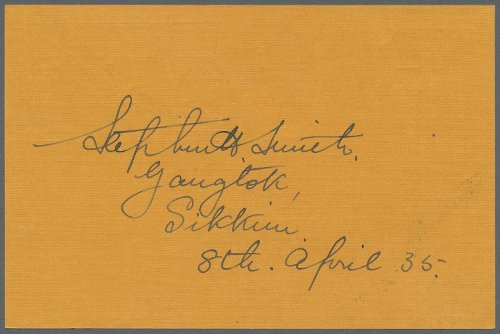 Stephen H Smith.
Gangtok,
Sikkim
8th. April 35.